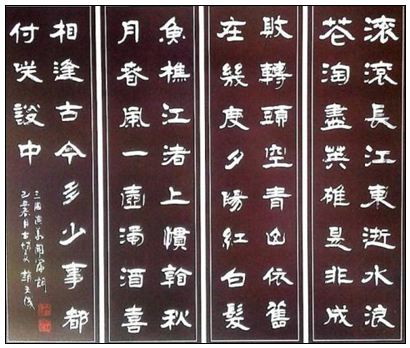 滾滾長江東逝水浪
花淘盡英雄是非成
敗轉頭空青山依舊
在幾度夕陽紅白髮
魚樵江渚上慣看秋
月春風一壺濁酒喜
相逢古今多少事都
付咲談中
三國演義開篇詞
己丑春月